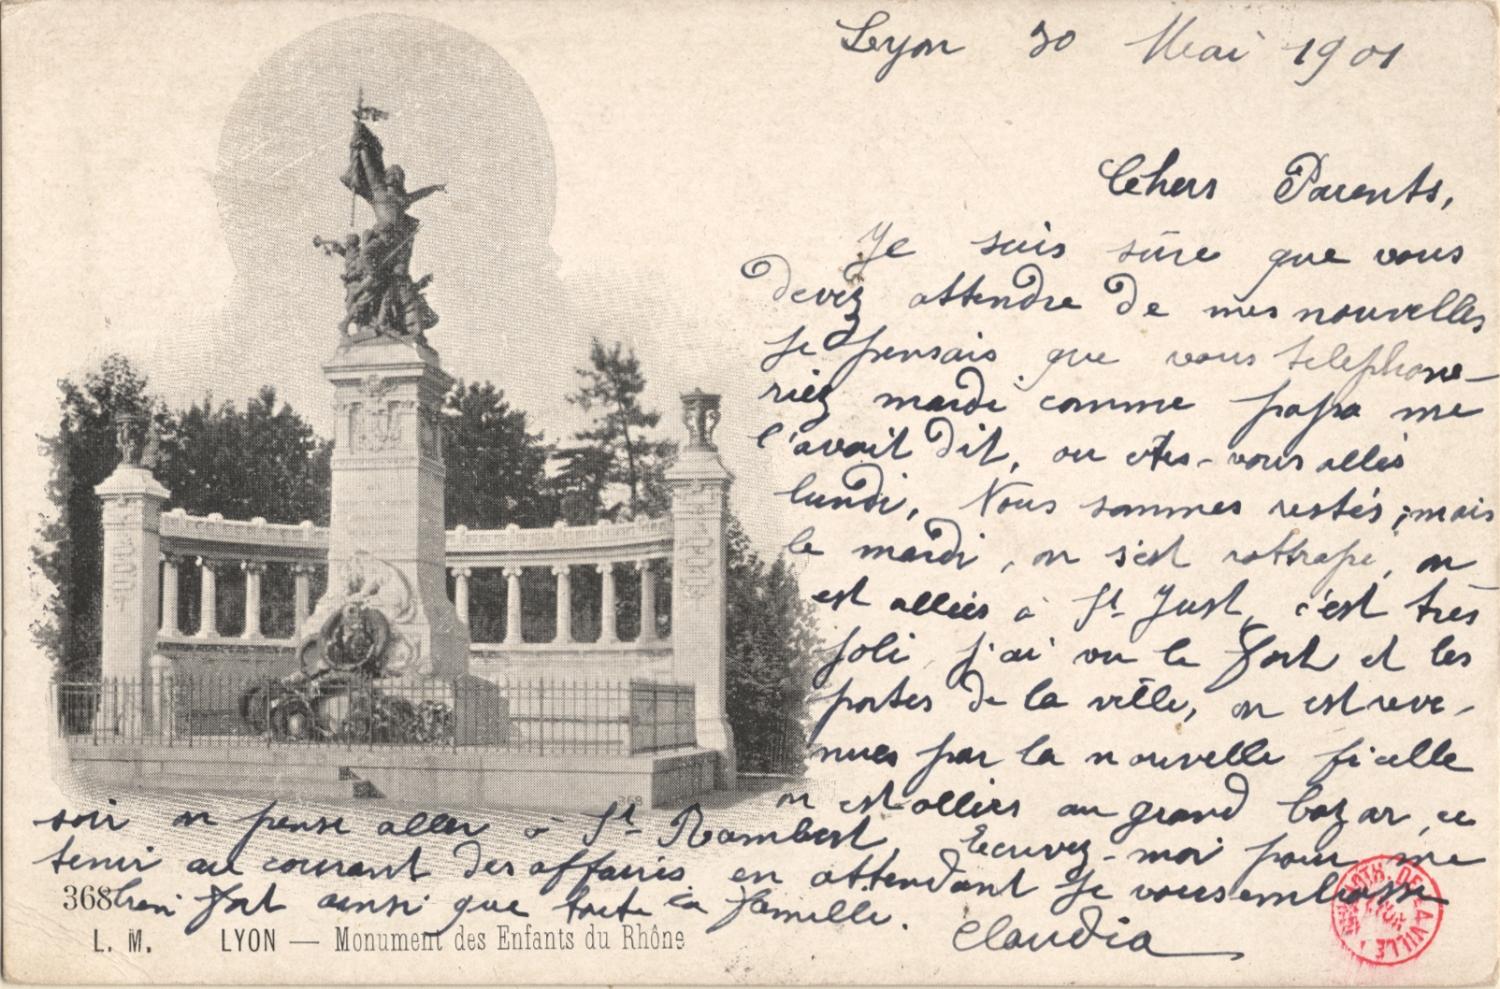 Lyon 30 Mai 1901
Chers Parents,
Je suis sûre que vous
devez attendre de mes nouvelles
je pensais que vous telephone-
riez mardi comme papa me
l'avait dit, ou êtes-vous allés
lundi, Nous sommes restés; mais
le mardi, on s'est rattrapé, on
est allées à St Just, c'est très
joli, j'ai vu le fort et les
portes de la ville, on est reve-
nues par la nouvelle ficelle
on est allées au grand bazar, ce
soir on pense aller à St Rambert, Ecrivez-moi pour me
tenir au courant des affaires en attendant je vous embrasse
bien fort ainsi que toute la famille.
Claudia
368
368
L. M. LYON — Monument des Enfants du Rhône
BIBLIOTH. DE LA VILLE
LYON